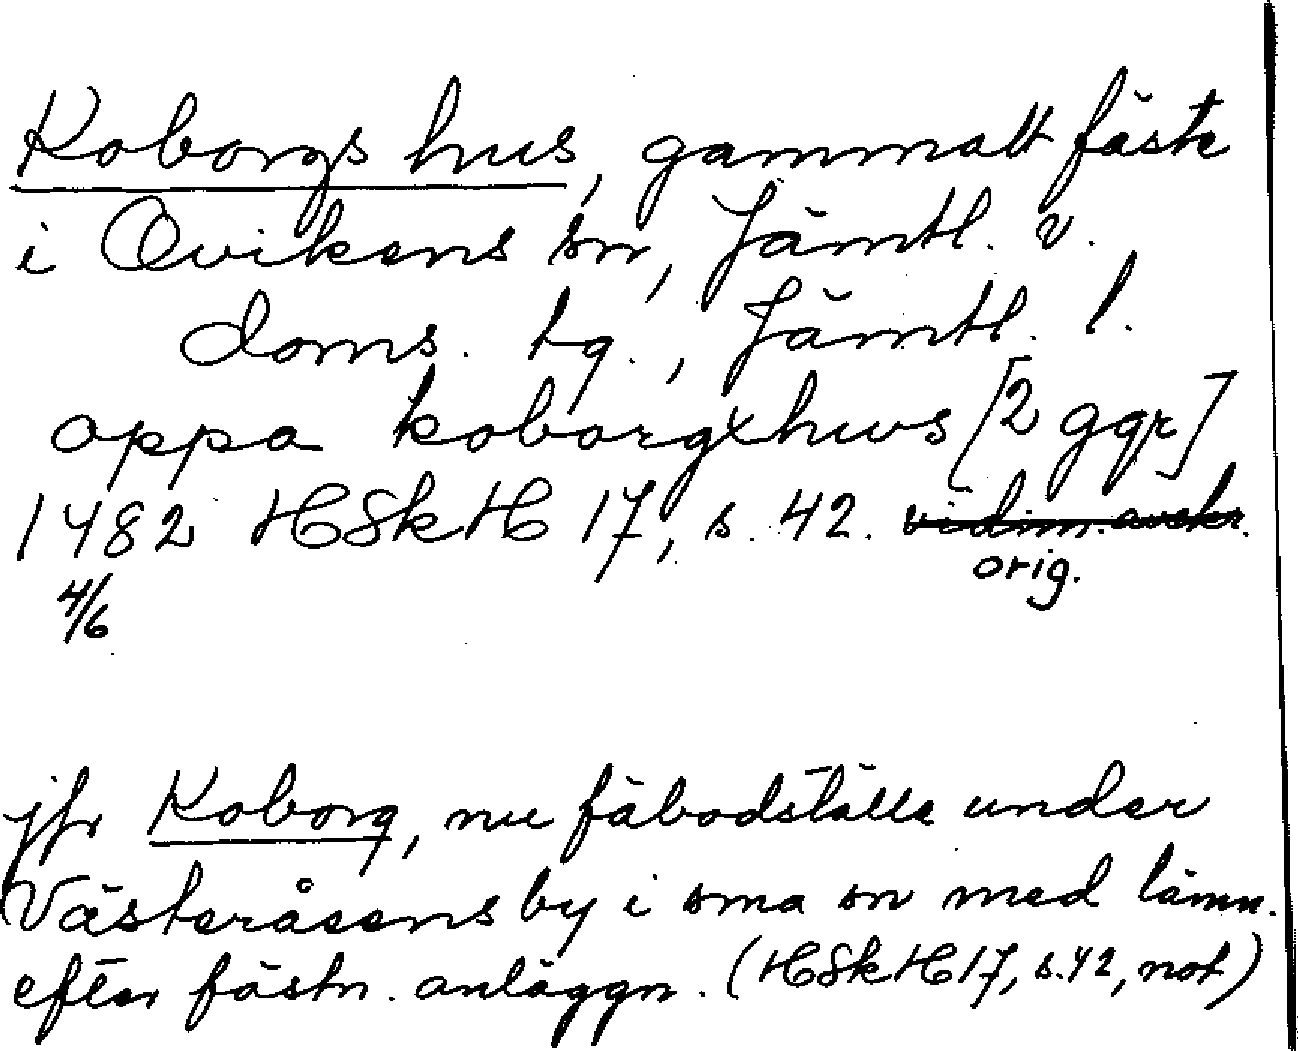 Koborgs hus, gammalt fäste
i Ovikens sn, Jämtl. v.
doms. tg., Jämtl. l.
oppa koborgxhws [2 ggr]
1482 HSkH 17, s. 42. vidim. avskr.
orig.
4/6
jfr Koborg, nu fäbodställe under
Västeråsens by i sma sn med lämn.
efter fästn. anläggn. (HSkH 17, s. 42, not)